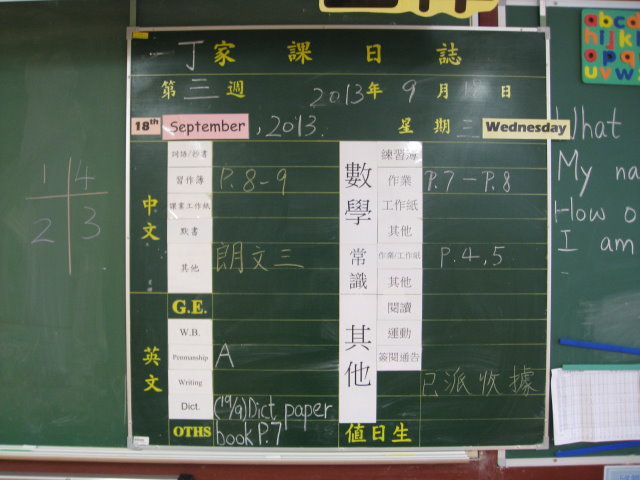 一丁家課日誌
第三週 2013年9月18日
18th September, 2013. 星期三 Wednesday
中文
詞語/抄書
習作簿 P.8-9
課業工作紙
默書
其他 朗文三
G.E.
英文
W.B.
Penmanship A
Writing
Dict. (19/9) Dict. paper
OTHS book P.7
數學
練習簿
作業 P.7-P.8
工作紙
其他
常識
作業/工作紙 P.4,5
其他
其他
閱讀
運動
簽閱通告
已派收據
值日生
1 4
2 3
abcd
hijkl
opq
uvw
What
My na
How o
I am